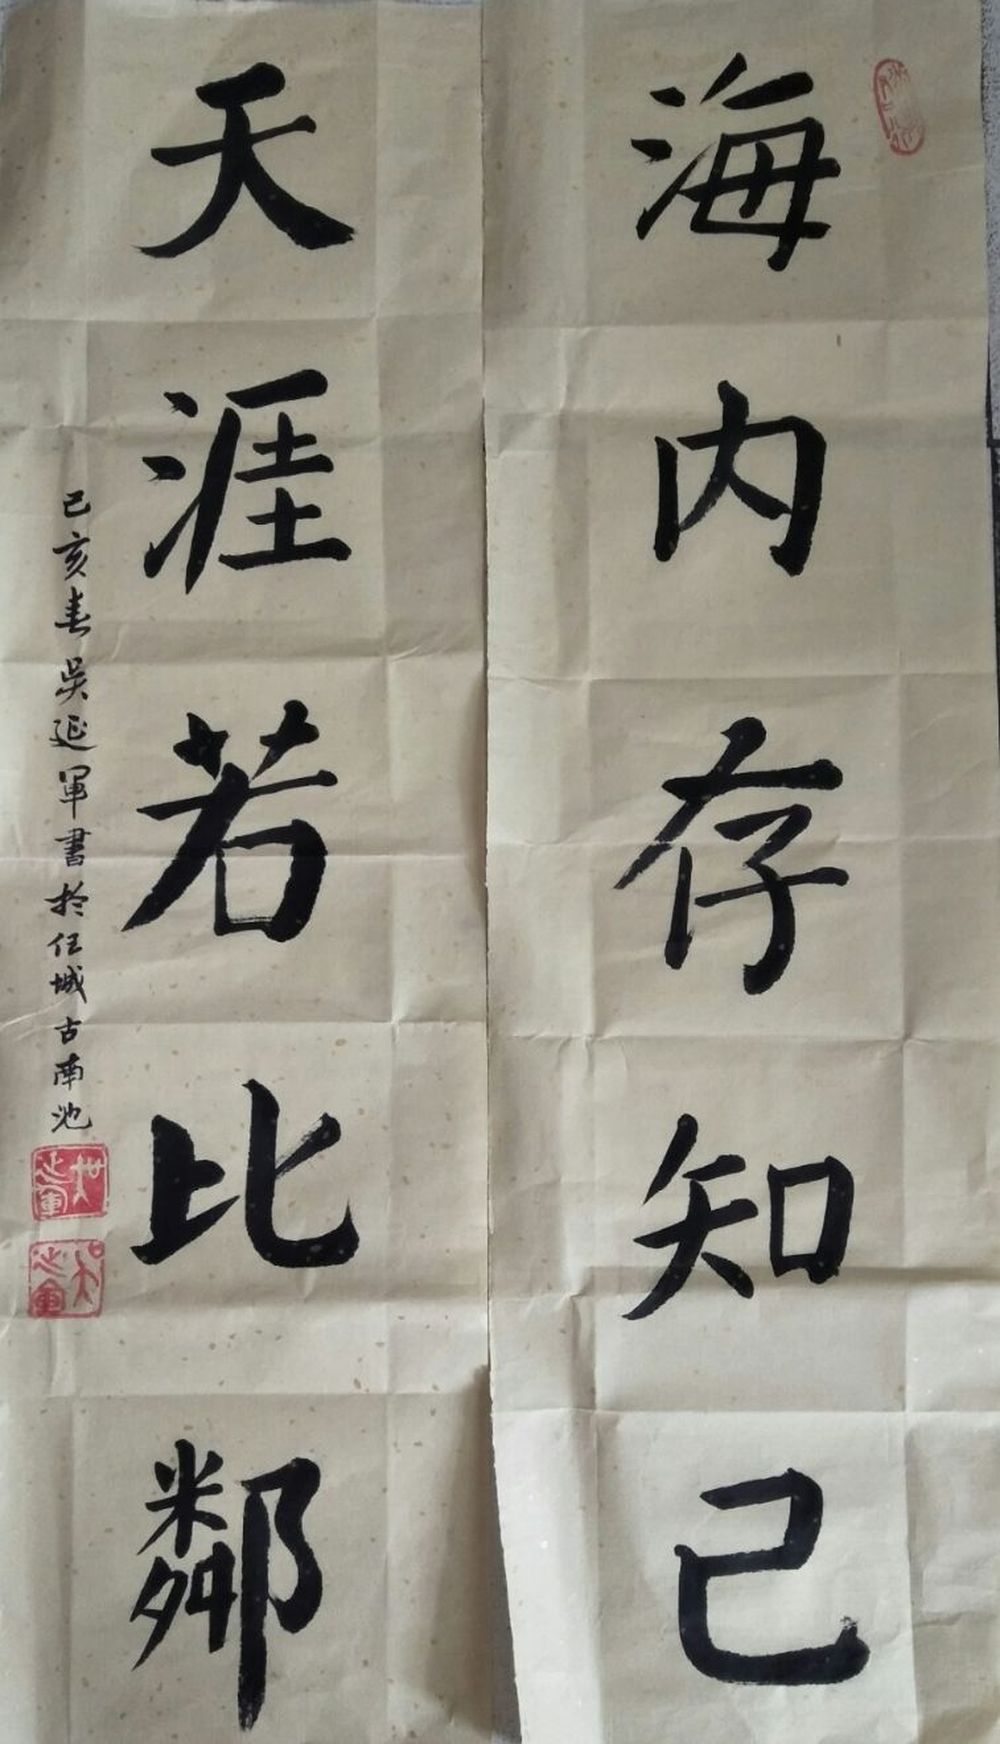 海内存知己
天涯若比鄰
己亥春吴延軍書於任城古南池